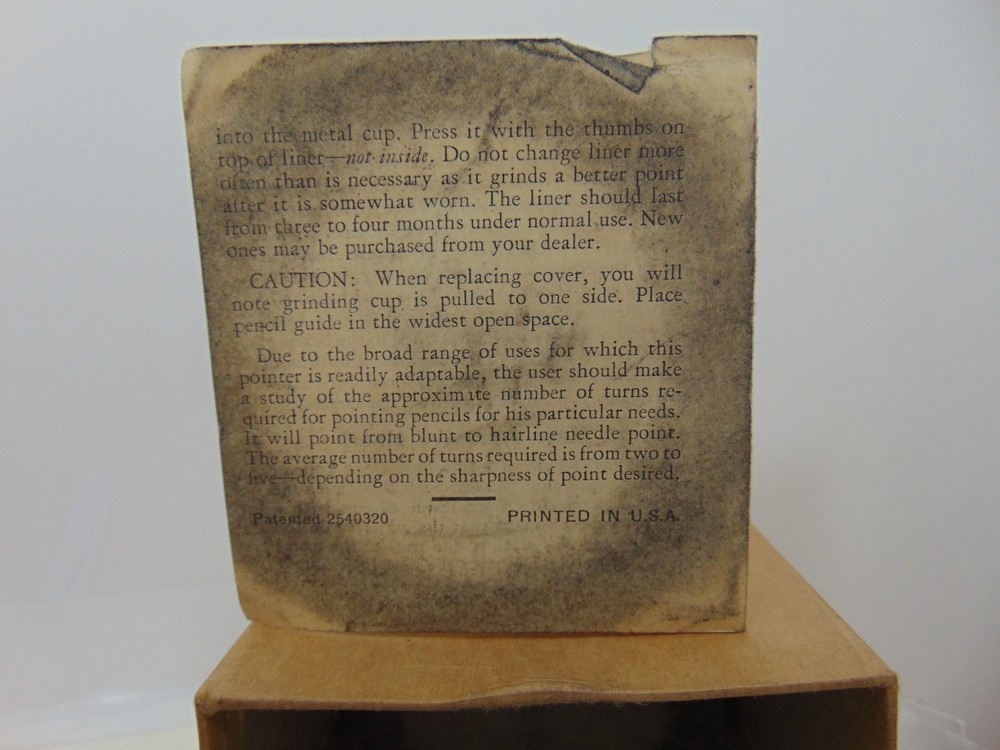 into the metal cup. Press it with the thumbs on
top of liner—not inside. Do not change liner more
often than is necessary as it grinds a better point
after it is somewhat worn. The liner should last
from three to four months under normal use. New
ones may be purchased from your dealer.
CAUTION: When replacing cover, you will
note grinding cup is pulled to one side. Place
pencil guide in the widest open space.
Due to the broad range of uses for which this
pointer is readily adaptable, the user should make
a study of the approximate number of turns re-
quired for pointing pencils for his particular needs.
It will point from blunt to hairline needle point.
The average number of turns required is from two to
five—depending on the sharpness of point desired.
Patented 2540320 PRINTED IN U.S.A.